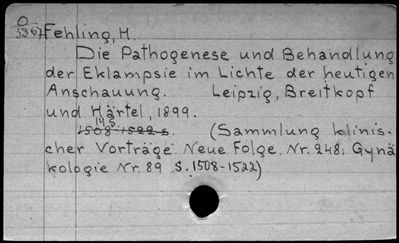 O
3867 Fehling, H.
Die Pathogenese und Behandlung
der Eklampsie im Lichte der heutigen
Anschauung. Leipzig, Breitkopf
und Härtel, 1899.
14 p.
1508-1522 s. (Sammlung klinis-
cher Vorträge Neue Folge. Nr. 248. Gynä
kologie Nr. 89 S. 1508-1522)